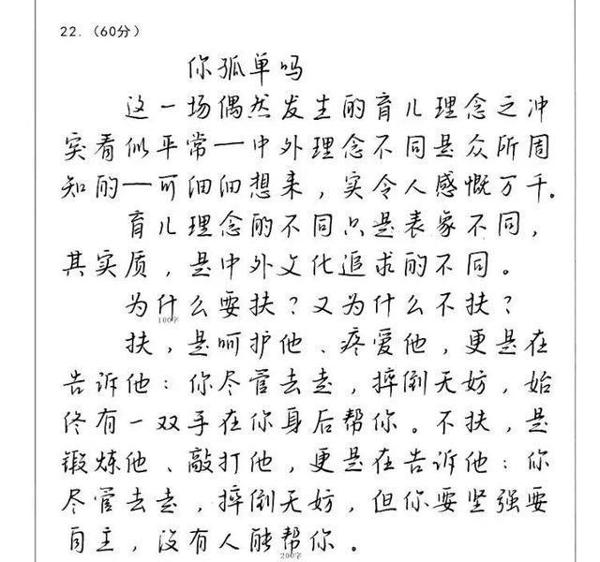 22.（60分）
你孤单吗
这一场偶然发生的育儿理念之冲
实看似平常一中外理念不同是众所周
知的一可细细想来，实令人感慨万千。
育儿理念的不同只是表象不同，
其实质，是中外文化追求的不同。
为什么要扶？又为什么不扶？
100字
扶，是呵护他、疼爱他，更是在
告诉他：你尽管去走，摔倒无妨，始
终有一双手在你身后帮你。不扶，是
锻炼他、敲打他，更是在告诉他：你
尽管去走，摔倒无妨，但你要坚强要
自主，没有人能帮你。
200字